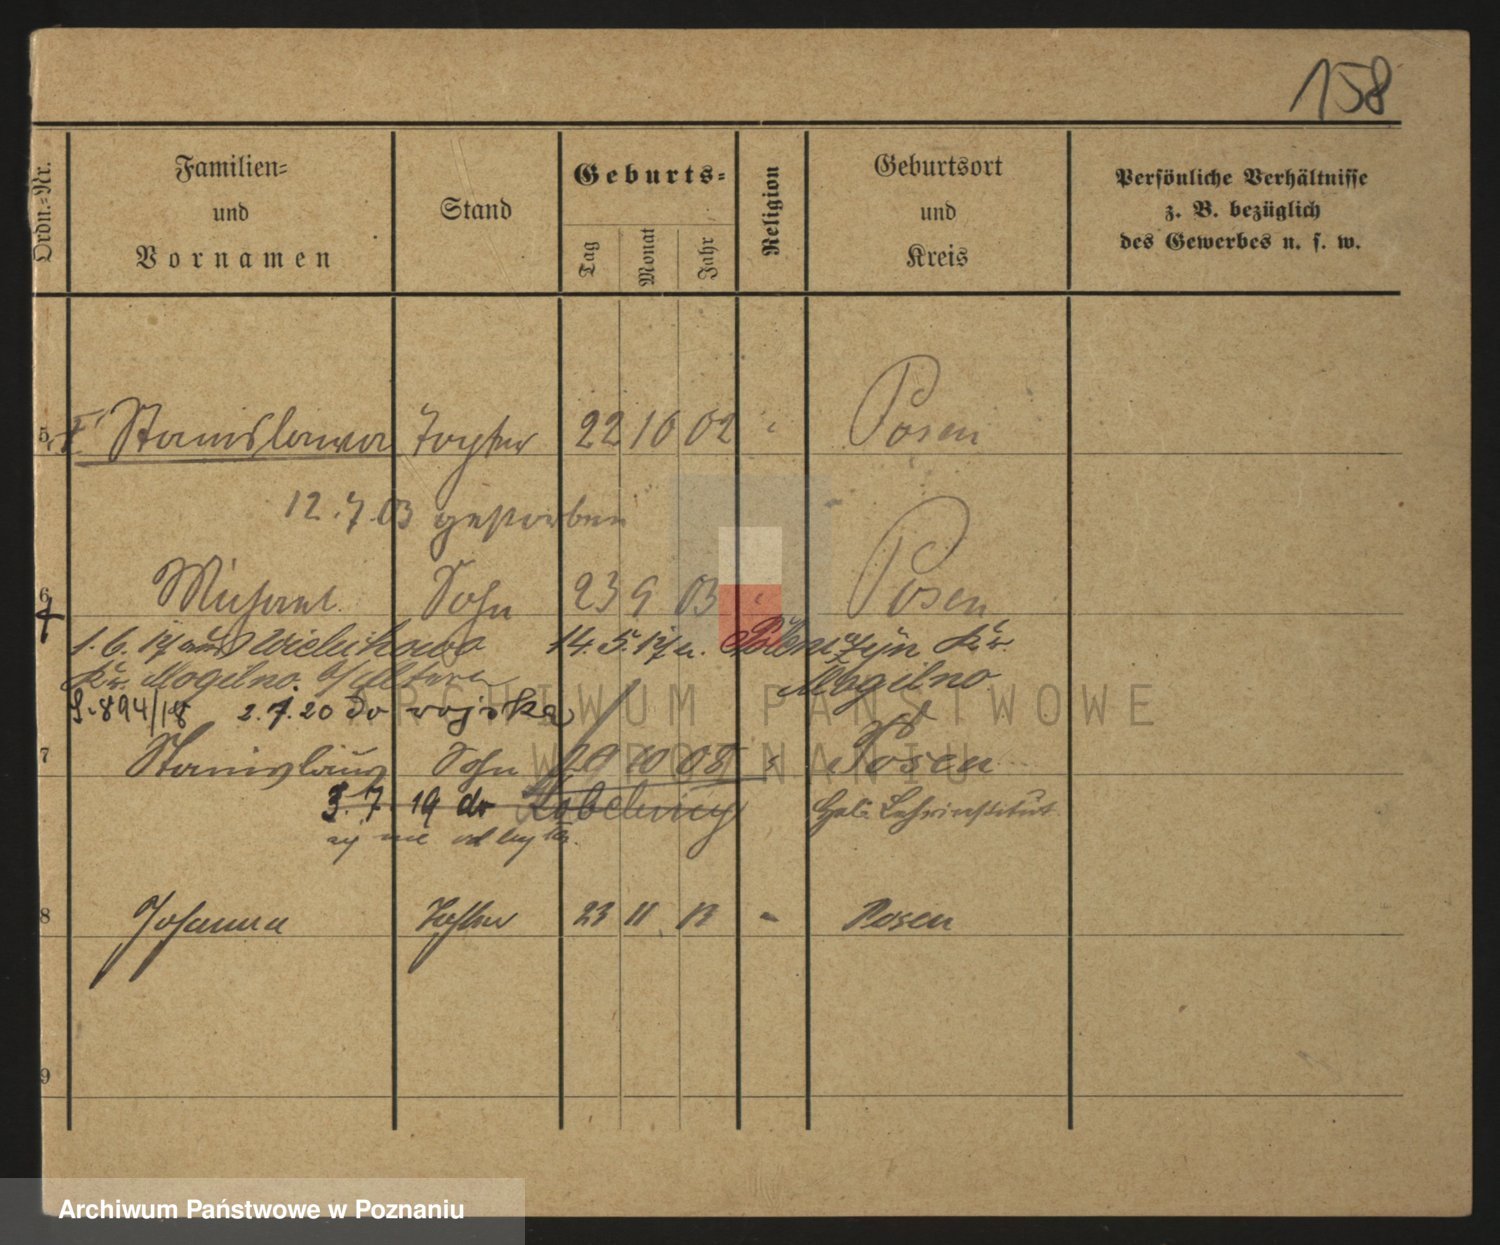 158
Ordn.-Nr.
Familien-
und
Vornamen
Stand
Geburts-
Tag
Monat
Jahr
Religion
Geburtsort
und
Kreis
Persönliche Verhältnisse
z. B. bezüglich
des Gewerbes u. s. w.
5 Stanislawa Tochter 22 10 02 " Posen
12.7.03 gestorben
6 Michael Sohn 23 9 03 " Posen
1.6.17 aus 14.5.17 n. Kr.
Kr. Mogilno. Mogilno
J.894/18 2.7.20 do wojska
7 Stanislaus Sohn 29 10 08 " Posen
3.7 19 do
nie
8 Johanna Tochter 23 11 12 " Posen
9
ARCHIWUM PAŃSTWOWE
W POZNANIU
Archiwum Państwowe w Poznaniu